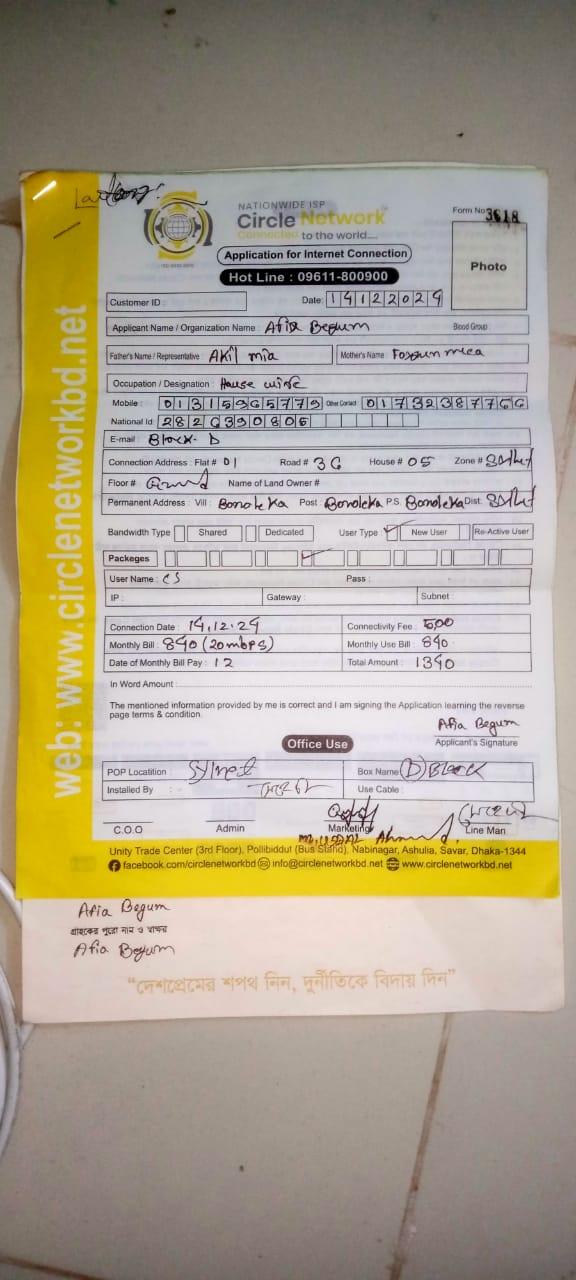 NATIONWIDE ISP
Circle Network
Connected to the world....
ISO 9001:2015
Form No 3618
Application for Internet Connection
Hot Line : 09611-800900
Photo
Customer ID :
Date: 14122024
Applicant Name / Organization Name : Afia Begum Blood Group :
Father's Name / Representative : AKil mia Mother's Name :
Occupation / Designation : House wife
Mobile : Other Contact
National Id:
E-mail : Block- D
Connection Address : Flat # 01 Road # 36 House # 05 Zone # Sylhet
Floor # Name of Land Owner #
Permanent Address : Vill : Bonoleka Post : Bonoleka P.S. Bonoleka Dist. Sylhet
Bandwidth Type Shared Dedicated User Type New User Re-Active User
Packeges
User Name : CS Pass :
IP : Gateway : Subnet :
Connection Date : 14.12.24 Connectivity Fee : 500
Monthly Bill : 840 (20mbps) Monthly Use Bill : 840
Date of Monthly Bill Pay : 12 Total Amount : 1340
In Word Amount :
The mentioned information provided by me is correct and I am signing the Application learning the reverse
page terms & condition.
Afia Begum
Applicant's Signature
Office Use
POP Locatition : Sylhet Box Name : (D) Block
Installed By : Use Cable :
C.O.O Admin Marketing Line Man
Ahmed
Unity Trade Center (3rd Floor), Pollibiddut (Bus Stand), Nabinagar, Ashulia, Savar, Dhaka-1344
facebook.com/circlenetworkbd info@circlenetworkbd.net www.circlenetworkbd.net
web: www.circlenetworkbd.net
Afia Begum
গ্রাহকের পুরো নাম ও স্বাক্ষর
Afia Begum
“দেশপ্রেমের শপথ নিন, দুর্নীতিকে বিদায় দিন”